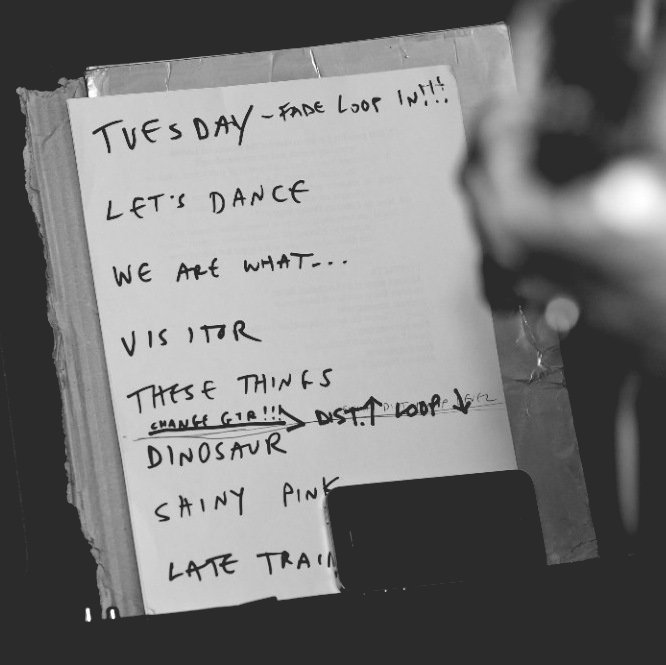 TUESDAY - FADE LOOP IN!!!
LET'S DANCE
WE ARE WHAT...
VISITOR
THESE THINGS
CHANGE GTR!!! > DIST.↑ LOOP ↓
DINOSAUR
SHINY PINK
LATE TRAIN